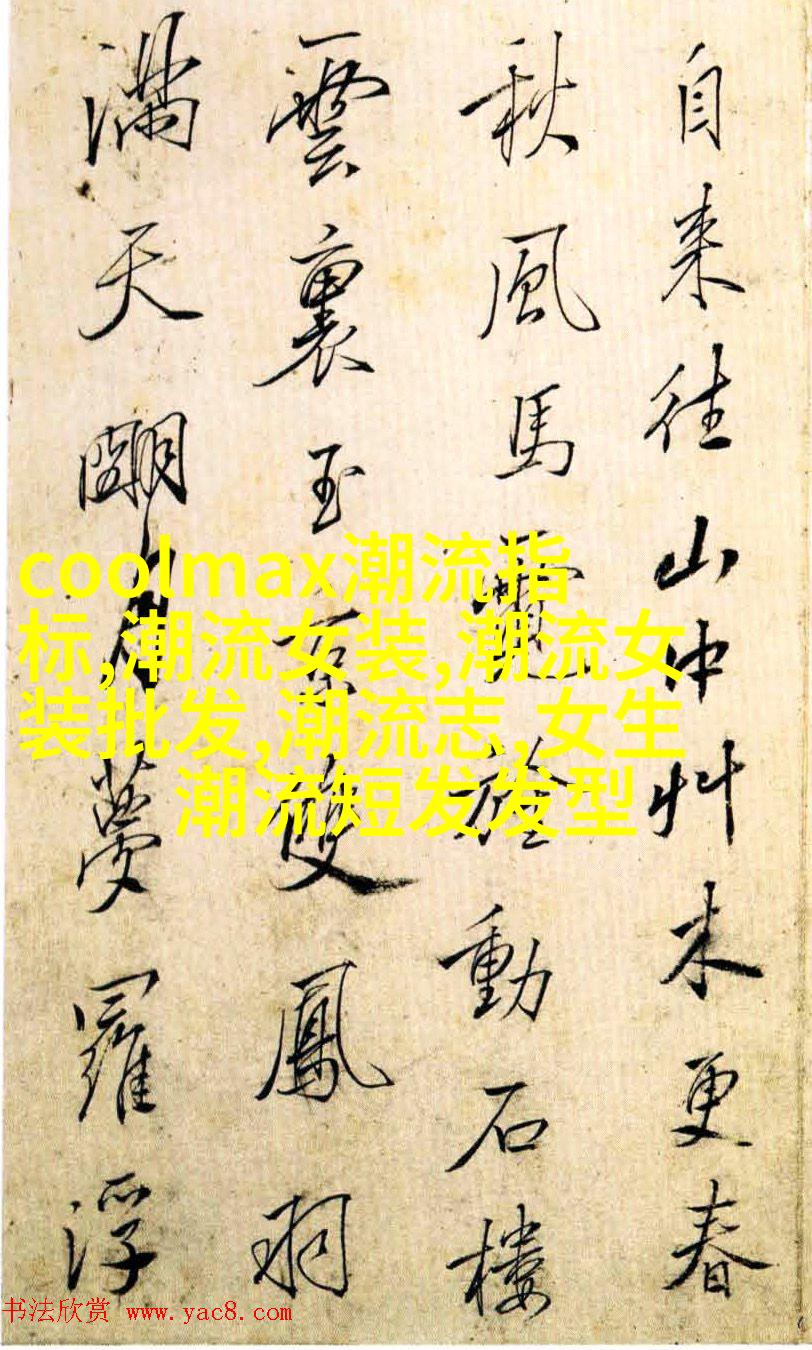 自来往山中艸木更春
秋風馬動石樓
雲裏玉京雙鳳
滿天月夢羅浮
coolmax潮流指
标,潮流女装,潮流女
装批发,潮流志,女生
潮流短发发型
书法欣赏 www.yac8.com